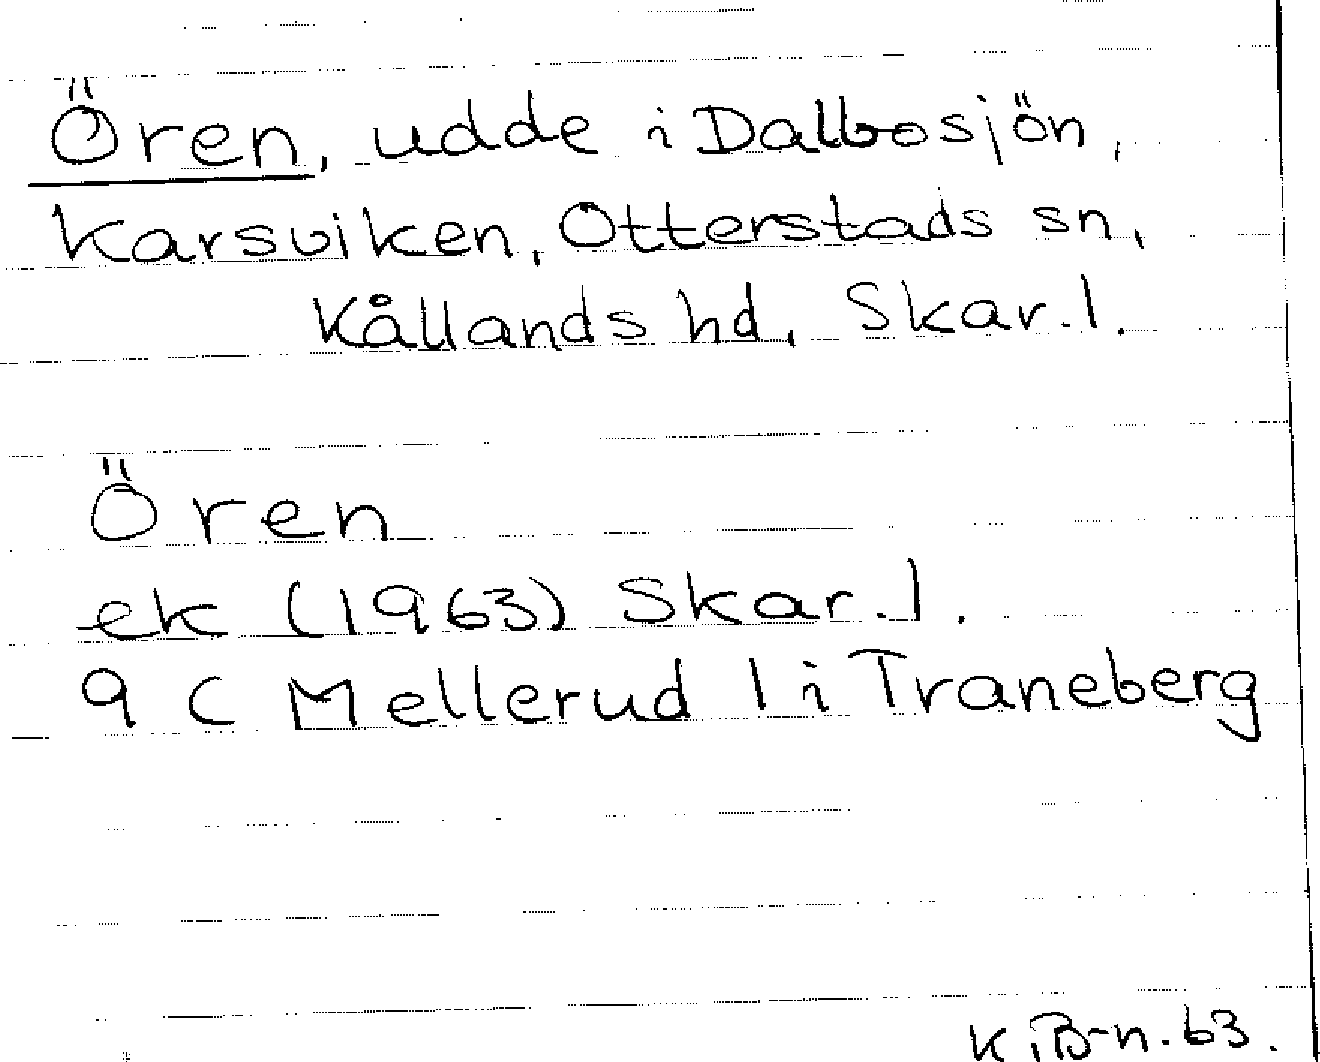 Ören, udde i Dalbosjön,
Karsviken, Otterstads sn,
Kållands hd, Skar.l.
Ören
ek (1963) Skar.l.
9 C Mellerud 1 i Traneberg
K.B-n. 63.